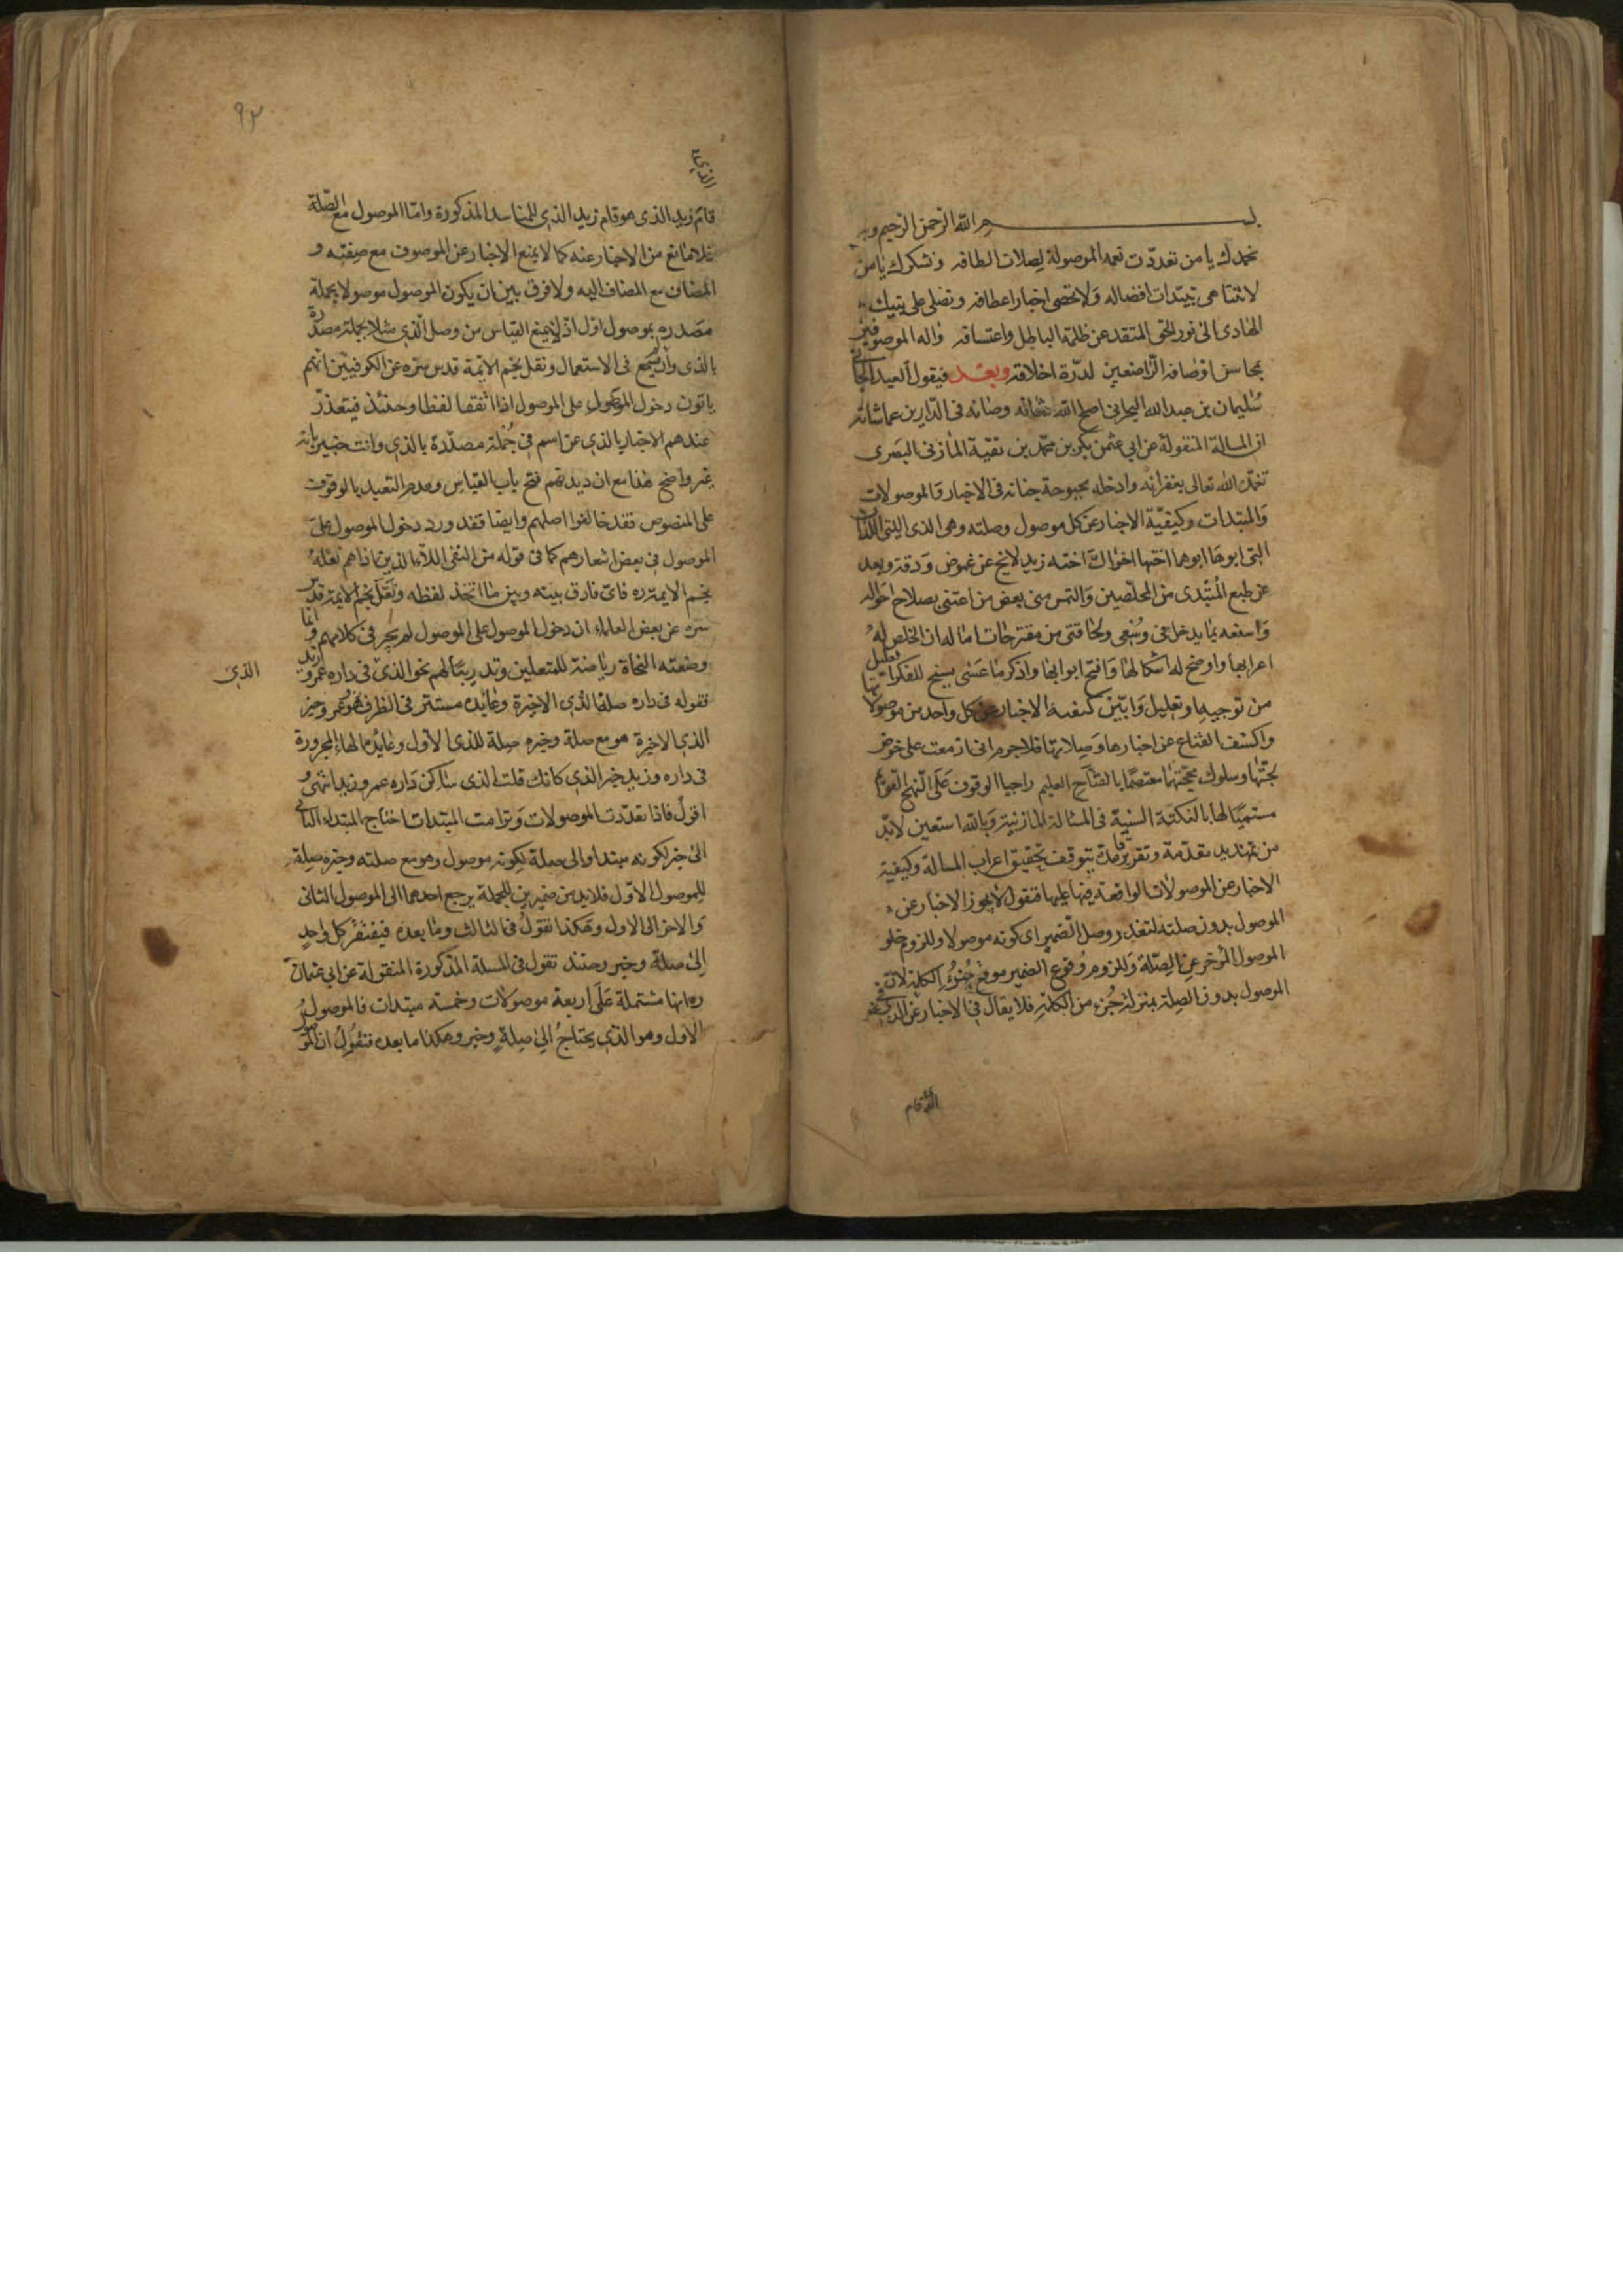 بسم الله الرحمن الرحيم وبه
نحمدك يا من تعددت نعمه الموصولة لصلات الطافه ونشكرك يا من
لا تتناهى مبتدات افضاله ولا تحصى اخبار اعطافه ونصلى على نبيك
الهادى الى نور الحق المنقذ عن ظلمة الباطل واعتسافه واله الموصوفين
بمحاسن اوصافه الراضعين لدرة اخلاقه وبعد فيقول العبد الجانى
سليمان بن عبد الله البحرانى اصلح الله شانه وصانه فى الدارين عما شانه
ان المسالة المنقولة عن ابي عثمن بكر بن محمد بن بقية المازنى البصرى
تغمده الله تعالى بغفرانه وادخله بحبوحة جنانه فى الاخبار فالموصولات
والمبتدات وكيفية الاخبار عن كل موصول وصلته وهى الذى التى اللذان
التى ابوها ابوهما اختها اخواك اخته زيد لا تخ عن غموض ودقة وبعد
عن طبع المبتدى من المحلصين والتمس منى بعض من اعتنى بصلاح احواله
واسعفه بما يدخل فى وسعى ولحاقتى من مقترحات اماله ان الخص له
اعرابها واوضح له اشكالها وافتح ابوابها واذكر ما عسى يسنح للفكر
من توجيه وتعليل وابين كيفية الاخبار عن كل واحد من موصولاتها
واكشف القناع عن اخبارها وصلاتها فلا جرم انى ازمعت على خوض
لجتها وسلوك محجتها معتصما بالفتاح العليم راجيا الوقوف على النهج القويم
مستميًا لها بالنكتة السنية فى المسالة المازنية وبالله استعين لابد
من تمهيد مقدمة وتقرير قاعدة يتوقف تحقيق اعراب المسالة وكيفية
الاخبار عن الموصولات الواقعة فيها عليها فنقول لا يجوز الاخبار عن
الموصول بدون صلته لتعذر وصل الضمير اى كونه موصولا وللزوم خلو
الموصول المؤخر عن الصلة وللزوم وقوع الضمير موقع جزء الكلمة لان
الموصول بدون الصلة بمنزلة جزء من الكلمة فلا يقال فى الاخبار عن الذى فى نحو
الذى قام
٩٢
الذى
قائم زيد الذى هو قام زيد الذى للمفاسد المذكورة واما الموصول مع الصلة
فلا مانع من الاخبار عنه كما لا يمنع الاخبار عن الموصوف مع صفته و
المضاف مع المضاف اليه ولا فرق بين ان يكون الموصول موصولا بجملة
مصدره بموصول اول اذ لا يمنع القياس من وصل الذى مثلا بجملة مصدرة
بالذى وان لم يسمع فى الاستعمال ونقل نجم الائمة قدس سره عن الكوفيين انهم
يابون دخول الموصول على الموصول اذا اتفقا لفظا وحينئذ فيتعذر
عندهم الاخبار بالذى عن اسم فى جملة مصدرة بالذى وانت خبير بانه
غير واضح هذا مع ان ديدنهم فتح باب القياس وعدم التعبد بالوقوف
على المنصوص فقد خالفوا اصلهم وايضا فقد ورد دخول الموصول على
الموصول فى بعض اشعارهم كما فى قوله من النفر اللاء الذين اذا هم نقله
نجم الايمة ره فاى فارق بينه وبين ما اتخذ لفظه ونقل نجم الايمة قدس
سره عن بعض العلماء ان دخول الموصول على الموصول لم يجر فى كلامهم وانما
وضعته النحاة رياضة للمتعلمين وتدريبًا لهم نحو الذى فى داره عمرو زيد
الذى
فقوله فى داره صلة الذى الاخيرة وعايده مستتر فى الظرف هو عمرو خبر
الذى الاخيرة هو مع صلة وخبره صلة للذى الاول وعايده الهاء المجرورة
فى داره وزيد خبر الذى كانك قلت الذى ساكن داره عمرو زيد انتهى و
اقول فاذا تعددت الموصولات وترامت المبتدات احتاج المبتداء الثانى
الى خبر لكونه مبتدا والى صلة لكونه موصول وهو مع صلته وخبره صلة
للموصول الاول فلابد من ضميرين للجملة يرجع احدهما الى الموصول الثانى
والاخر الى الاول وهكذا نقول فى الثالث وما بعده فيفتقر كل واحد
الى صلة وخبر وحينئذ نقول فى المسلة المذكورة المنقولة عن ابى عثمان
ره انها مشتملة على اربعة موصولات وخمسه مبتدات فالموصول
الاول وهو الذى يحتاج الى صلة وخبر وهكذا ما بعده فنقول ان